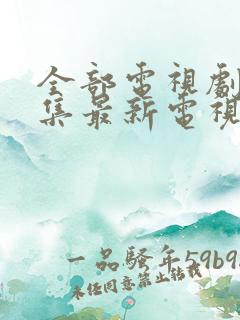 全部電視劇
集最新電視
一品騷年59b9
未任同意禁止轉載